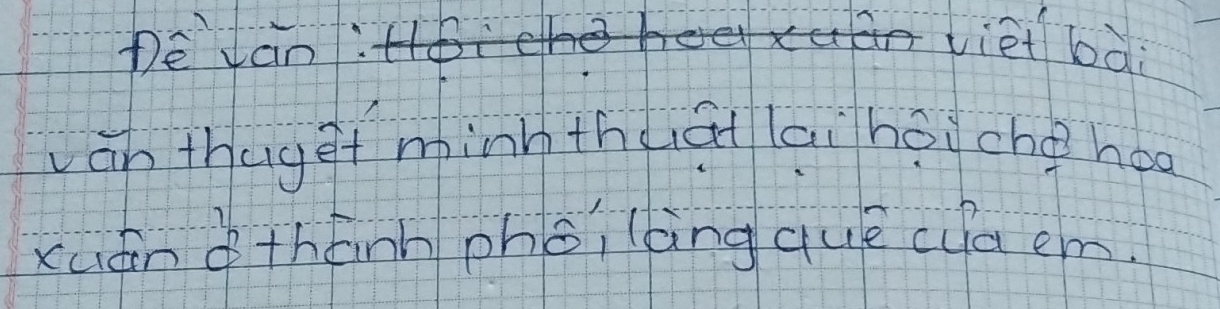 Đề văn : Hội chợ hoa xuân viết bài
văn thuyết minh thuật lại hội chợ hoa
xuân ở thành phố, làng quê của em.